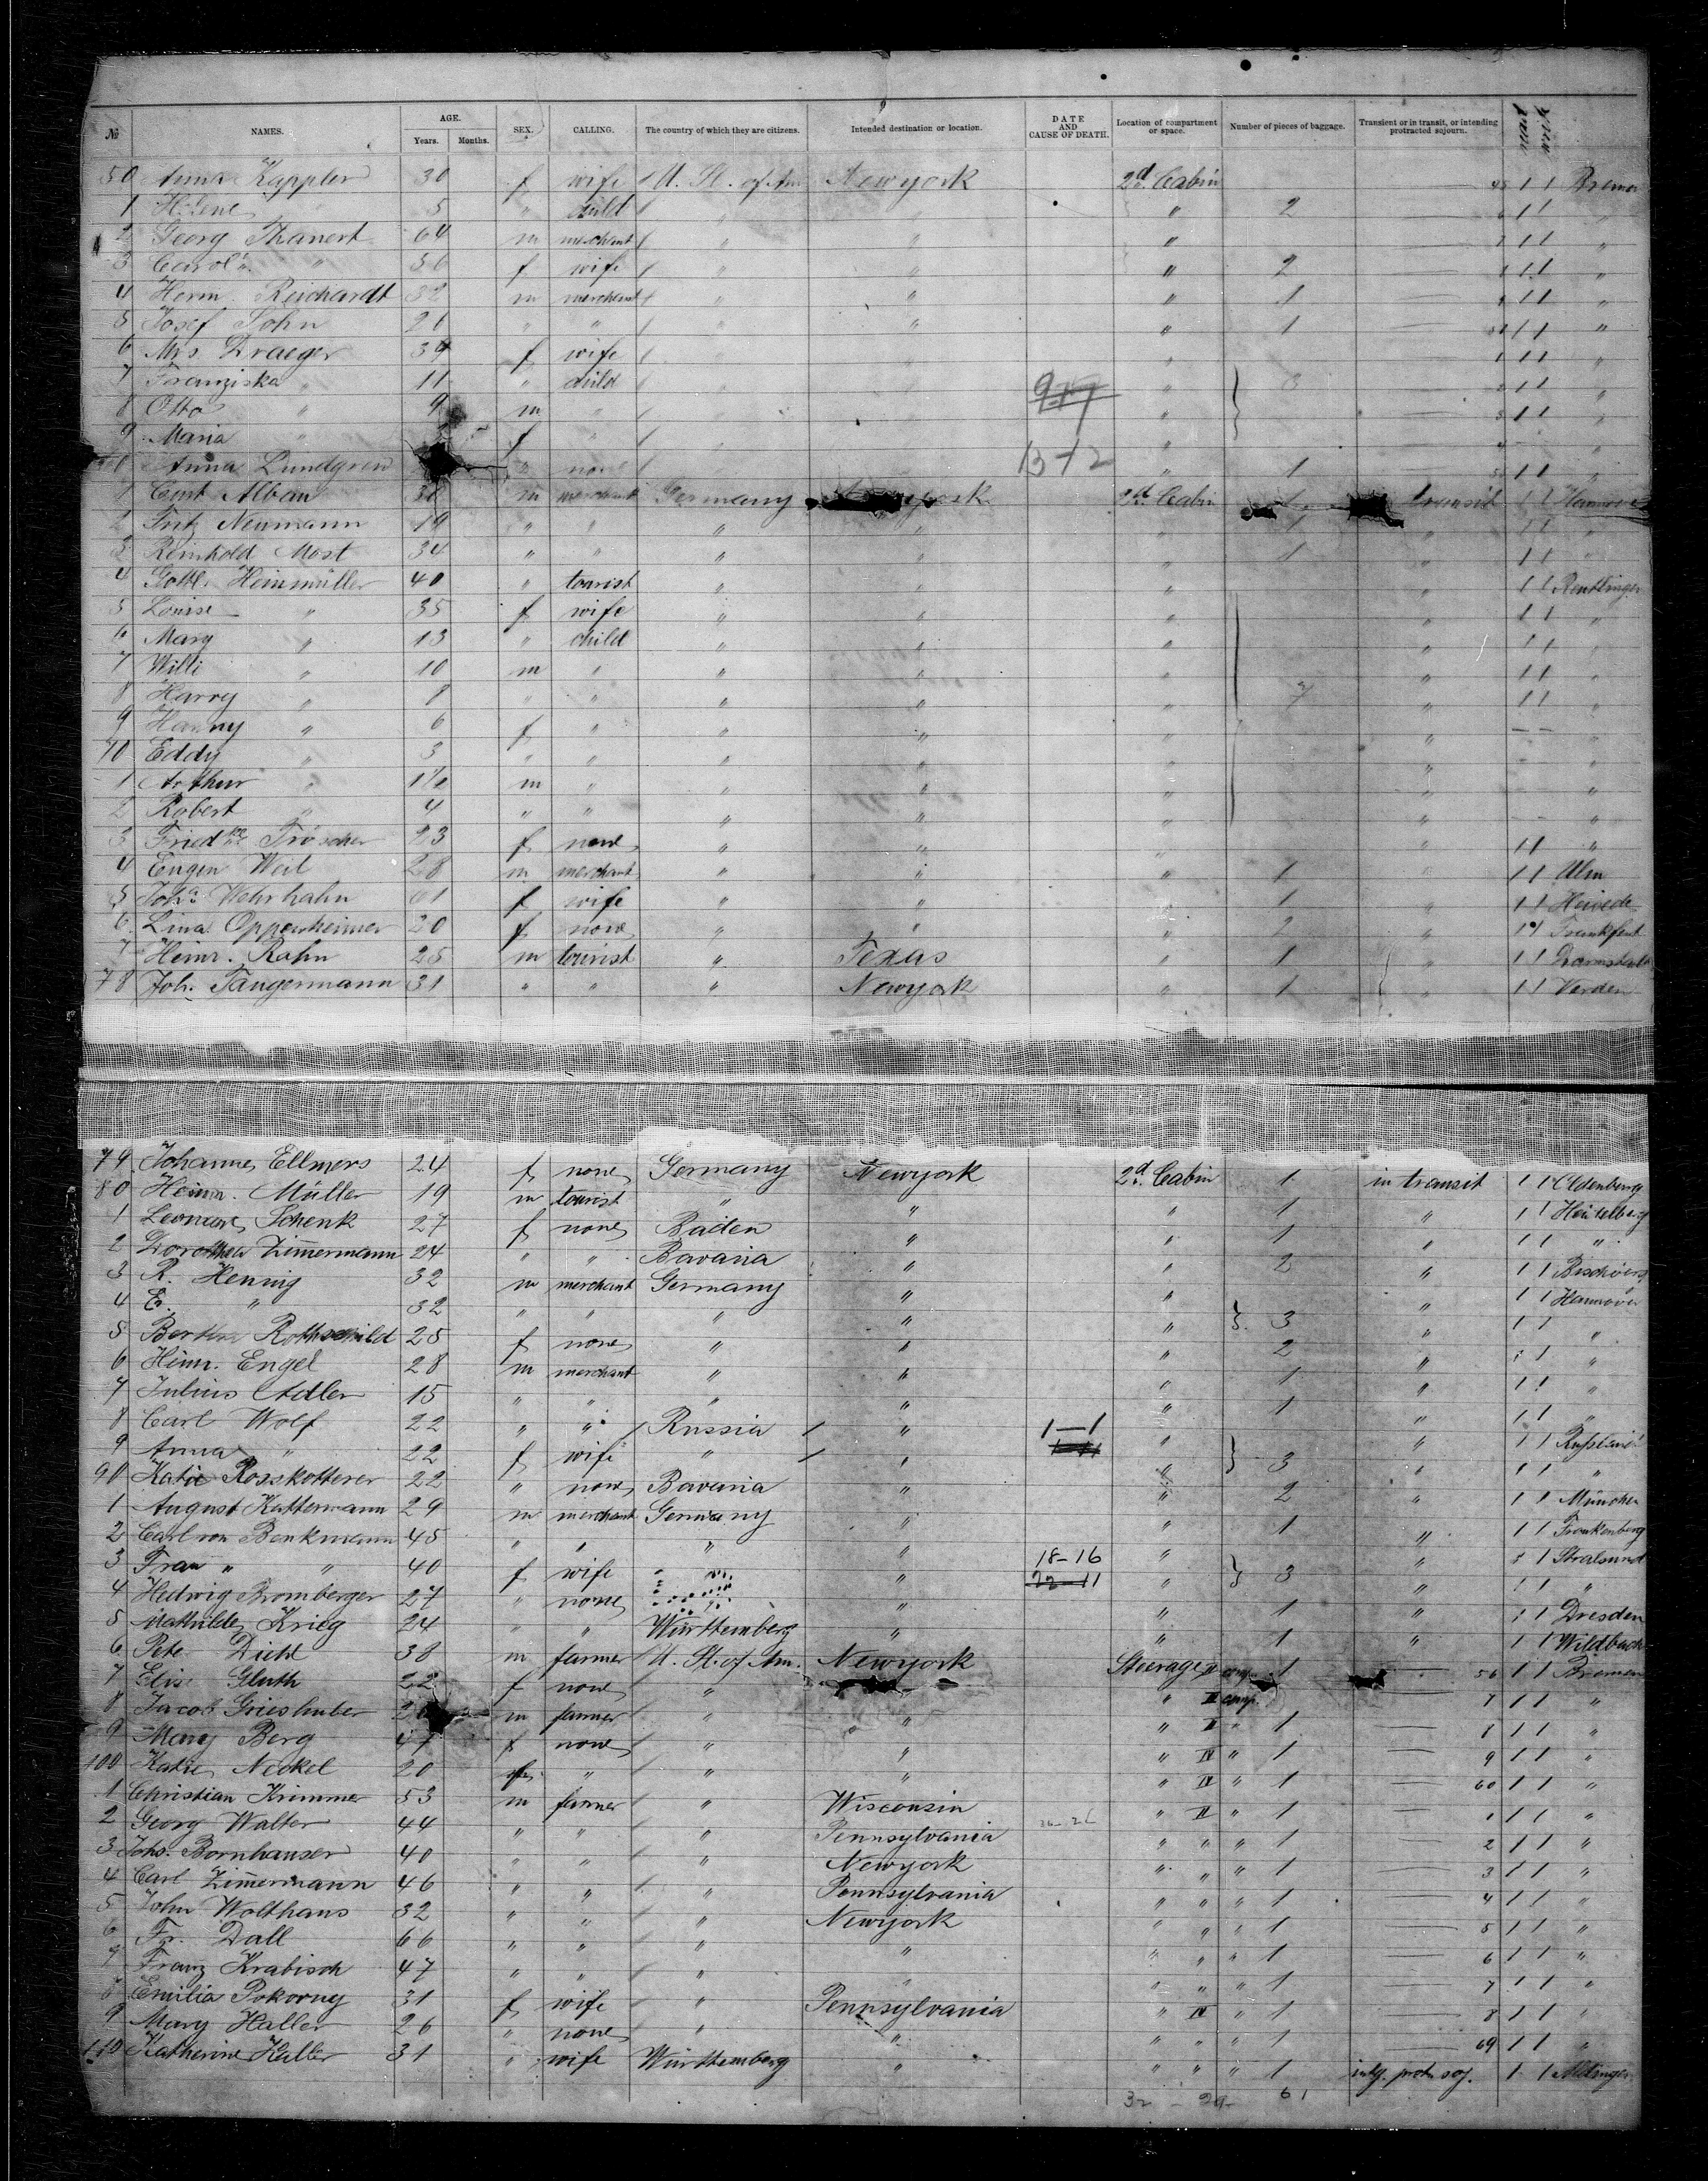 № NAMES. AGE. Years. Months. SEX. CALLING. The country of which they are citizens. Intended destination or location. DATE AND CAUSE OF DEATH. Location of compartment or space. Number of pieces of baggage. Transient or in transit, or intending protracted sojourn.
50 Anna Kappler 30 f wife U. St. of Am Newyork 2d. Cabin 1 1 Bremen
1 Helene 5 " child " " " 2 1 1 "
2 Georg Thanert 64 m merchant " " " 1 1 "
3 Carol. " 56 f wife " " " 2 1 1 "
4 Herm. Reichardt 32 m merchant " " " 1 1 1 "
5 Josef John 26 " " " " " 1 1 1 "
6 Mrs Draeger 34 f wife " " " 1 1 "
7 Franziska " 11 " child " " " 3 1 1 "
8 Otto " 9 m " " " " 1 1 "
9 Maria " f " " " " "
Anna Lundgren " none 13-12 " 1 1 1 "
1 Curt Alban 30 m merchant Germany Newyork 2d. Cabin 1 transit 1 1 Hannover
2 Fritz Neumann 19 " " " " " 1 " 1 1 "
3 Reinhold Most 34 " " " " " 1 " 1 1 "
4 Gottl. Heinmüller 40 " tourist " " " " 1 1 Reutlingen
5 Louise " 35 f wife " " " " 1 1 "
6 Mary " 13 " child " " " " 1 1 "
7 Willi " 10 m " " " " " 1 1 "
8 Harry " 8 " " " " " 7 " 1 1 "
9 Hanny " 6 f " " " " " – – "
70 Eddy " 3 " " " " " " "
1 Arthur " 1½ m " " " " " "
2 Robert " 4 " " " " " " "
3 Friedke Tröscher 23 f none " " " " 1 1 "
4 Eugen Weil 28 m merchant " " " 1 " 1 1 Ulm
5 Joha Wehrhahn 61 f wife " " " 1 " 1 1
6 Lina Oppenheimer 20 f none " " " 2 " 1 1 Frankfurt
7 Heinr. Rahn 25 m tourist " Texas " 1 " 1 1 Darmstadt
78 Joh. Tangermann 31 " " " Newyork " 1 " 1 1 Verden
79 Johanne Ellmers 24 f none Germany Newyork 2d. Cabin 1 in transit 1 1 Oldenburg
80 Heinr. Müller 19 m tourist " " " 1 " 1 1 Heidelberg
1 Leonore Schenk 27 f none Baden " " 1 " 1 1 "
2 Dorothea Zimermann 24 " " Bavaria " " 2 " 1 1
3 R. Hennig 32 m merchant Germany " " " 1 1 Hannover
4 E. " 32 " " " " " 3 " 1 1 "
5 Bertha Rothschild 25 f none " " " 2 " 1 1 "
6 Heinr. Engel 28 m merchant " " " 1 " 1 1 "
7 Julius Adler 15 " " " " " 1 " 1 1 "
8 Carl Wolf 22 " " Russia " 1-1 " " 1 1 Rußland
9 Anna " 22 f wife " " " 3 " 1 1 "
90 Katie Rosskotterer 22 " none Bavaria " " 2 " 1 1 München
1 August Kattermann 29 m merchant Germany " " 1 " 1 1 Frankenberg
2 Carl von Benkmann 45 " " " " " " 1 1 Stralsund
3 Frau " " 40 f wife " " 18-16 22-11 " 3 " 1 1 "
4 Hedwig Bromberger 27 " none " " " 1 " 1 1 Dresden
5 Mathilde Krieg 24 " " Württemberg " " 1 " 1 1 Wildbach
6 Pete Diehl 38 m farmer U. St. of Am. Newyork Steerage II comp. 1 56 1 1 Bremen
7 Elise Gluth 22 f none " " " II comp. 7 1 1 "
8 Jacob Grieshuber m farmer " " " II " 1 8 1 1 "
9 Mary Berg 47 f none " " " IV " 1 9 1 1 "
100 Katie Neckel 20 " " " " IV " 1 60 1 1 "
1 Christian Krimmer 53 m farmer " Wisconsin " II " 1 1 1 1 "
2 Georg Walter 44 " " " Pennsylvania " " " 1 2 1 1 "
3 Johs. Bornhauser 40 " " " Newyork " " " 1 3 1 1 "
4 Carl Zimermann 46 " " " Pennsylvania " " " 1 4 1 1 "
5 John Wolthaus 32 " " " Newyork " " " 1 5 1 1 "
6 Fr. Dall 66 " " " " " " " 1 6 1 1 "
7 Franz Krabisch 47 " " " " " " " 1 7 1 1 "
8 Emilia Pokorny 31 f wife " Pennsylvania " IV " 1 8 1 1 "
9 Mary Haller 26 " none " " " " " 1 69 1 1 "
110 Katherine Haller 31 " wife Württemberg " " " " 1 intg. protr. soj. 1 1 Aldingen
32 - 29 - 61